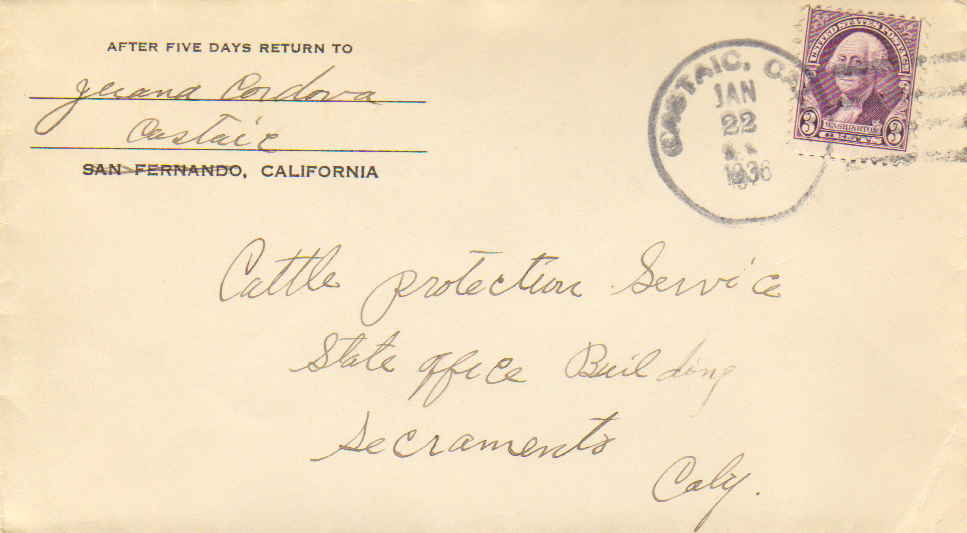 AFTER FIVE DAYS RETURN TO
Cordova
Castaic
SAN FERNANDO, CALIFORNIA
CASTAIC, CA
JAN
22
1936
UNITED STATES POSTAGE
3 WASHINGTON 3
Cattle protection Service
State office Building
Secramento
Calif.